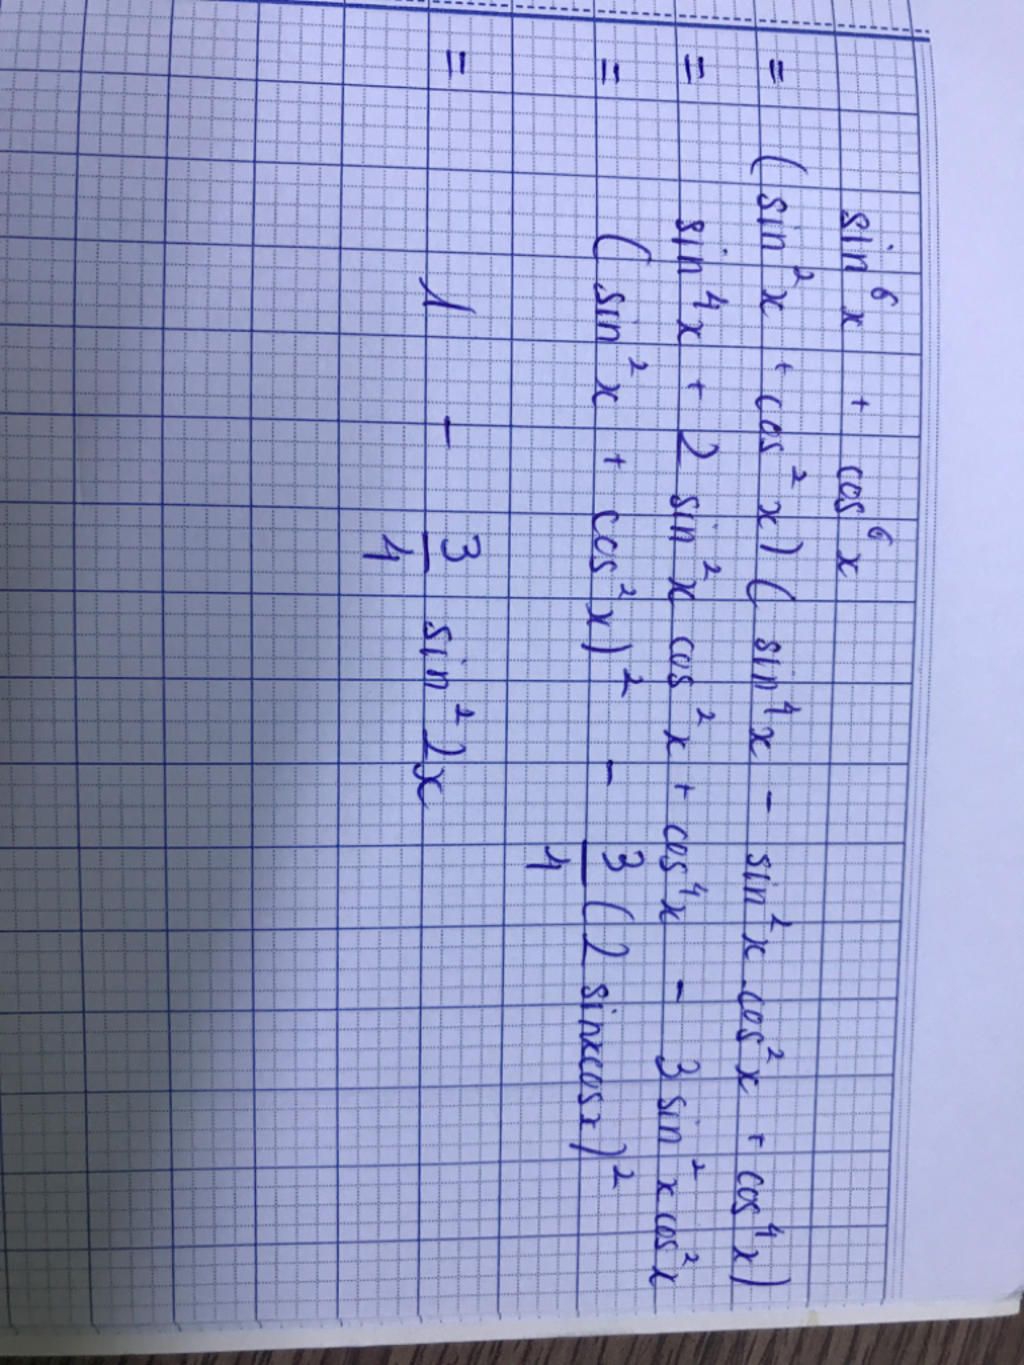 sin⁶x + cos⁶x
= (sin²x + cos²x)(sin⁴x - sin²x cos²x + cos⁴x)
= sin⁴x + 2 sin²x cos²x + cos⁴x - 3 sin²x cos²x
= (sin²x + cos²x)² - 3/4 (2 sinxcosx)²
= 1 - 3/4 sin²2x